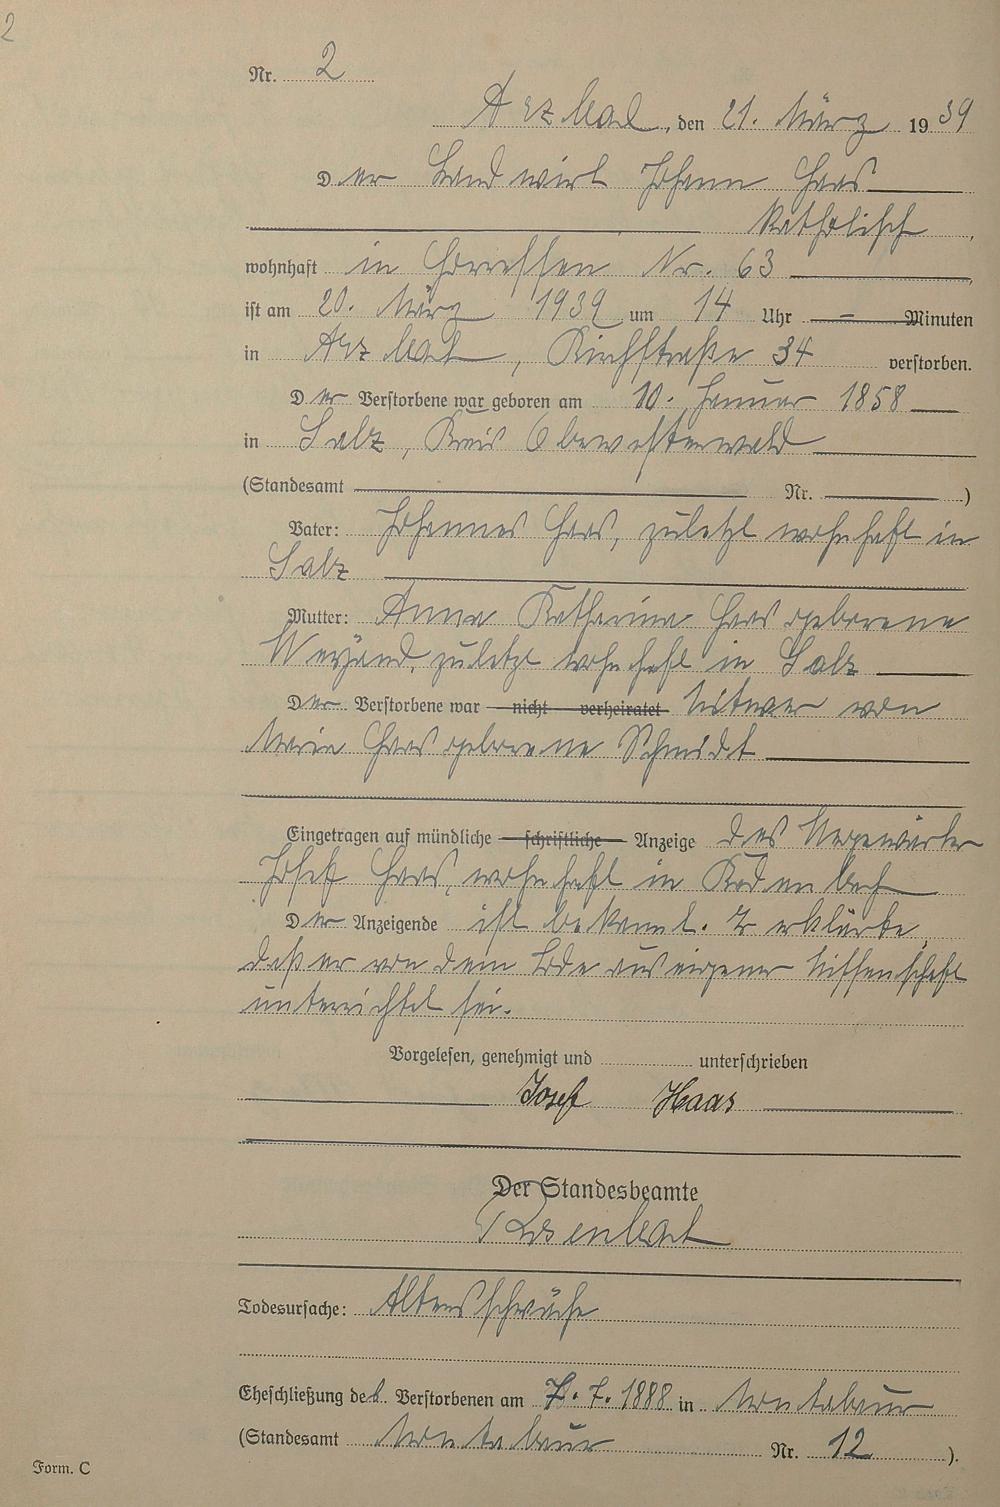 2
Nr. 2
Arzbach, den 21. März 1939
Der Landwirt Johann Haas
katholisch,
wohnhaft in Horressen Nr. 63,
ist am 20. März 1939 um 14 Uhr — Minuten
in Arzbach, Kirchstraße 34 verstorben.
Der Verstorbene war geboren am 10. Januar 1858
in Salz, Kreis Oberwesterwald
(Standesamt Nr. )
Vater: Johannes Haas, zuletzt wohnhaft in
Salz
Mutter: Anna Katharina Haas geborene
Weyand, zuletzt wohnhaft in Salz
Der Verstorbene war nicht verheiratet Witwer von
Maria Haas geborene Schmidt
Eingetragen auf mündliche schriftliche Anzeige des Wegewärter
Josef Haas, wohnhaft in Kadenbach
Der Anzeigende ist bekannt. Er erklärte,
daß er von dem Tode aus eigener Wissenschaft
unterrichtet sei.
Vorgelesen, genehmigt und unterschrieben
Josef Haas
Der Standesbeamte
Todesursache: Altersschwäche
Eheschließung des Verstorbenen am 7. 7. 1888 in Montabaur
(Standesamt Montabaur Nr. 12 ).
Form. C